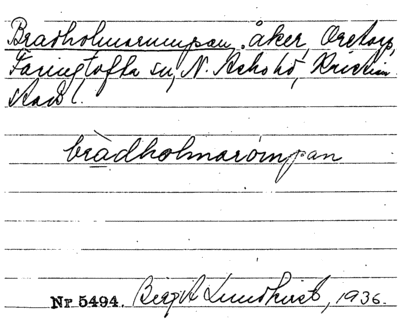 Bradholmarumpan, åker, Oretorp,
Färingtofta sn, N. Åsbo hd, Kristian-
stad l.
brådholmarompan
Nr 5494. Birgit Lundkvist, 1936.